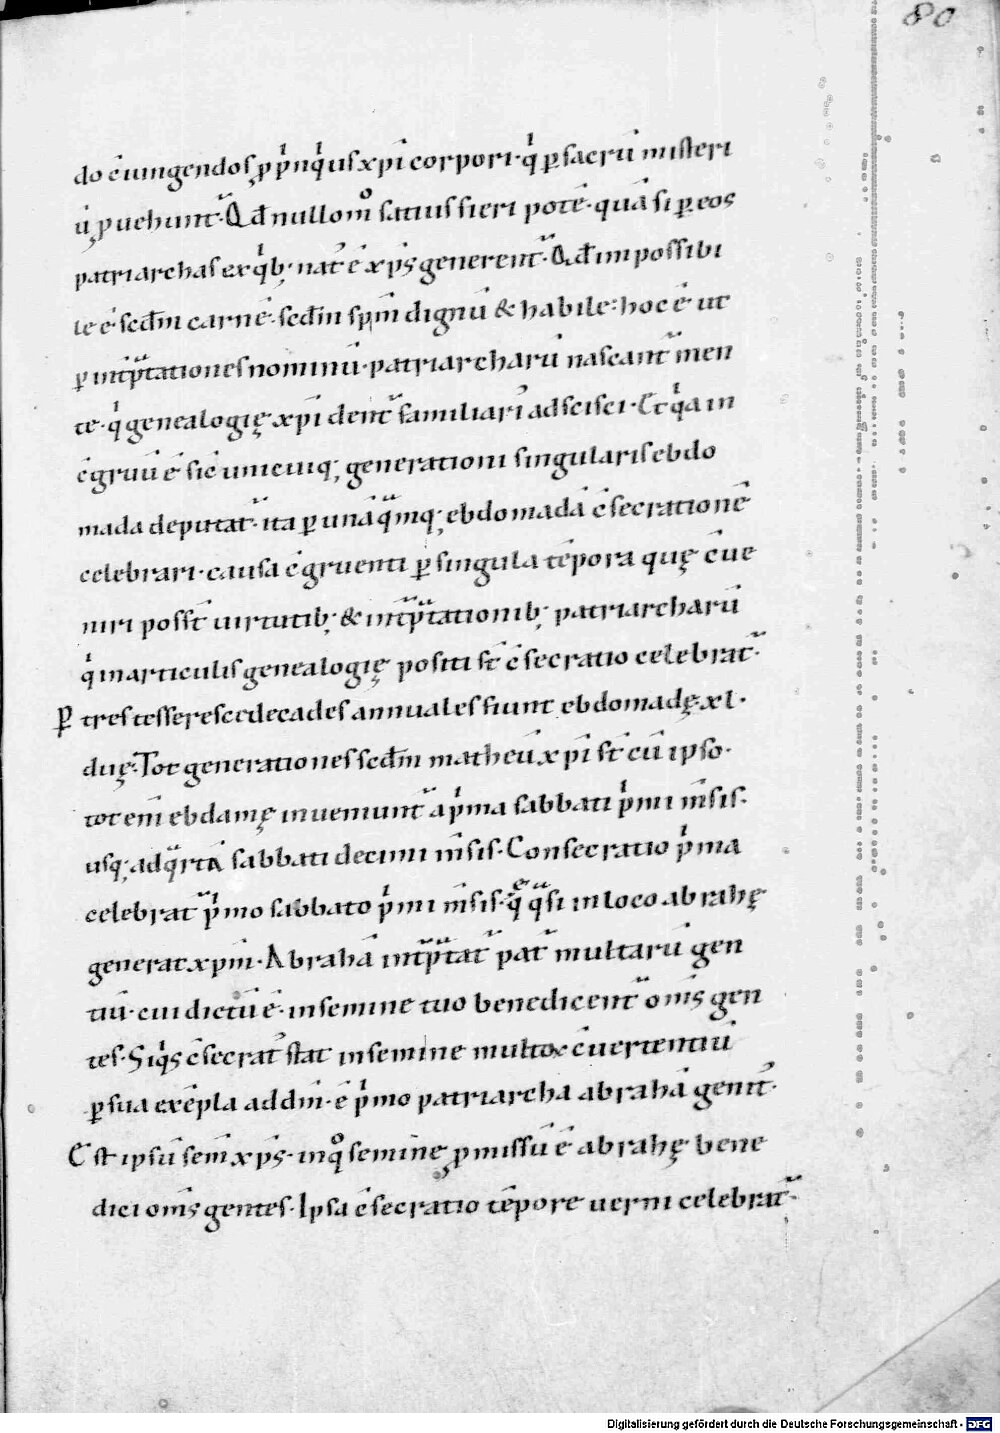 80
do c̄iungendos ꝓp̄nq̇us xp̄i corpori· q̇ ꝑ sacrū misteri
ū ꝓuehunt᷒· Qđ nullom̊ satius fieri potē· quā si ꝑ eos
patriarchas ex q̇b; nat̄ ē xp̄s generent᷒· Qđ impossibi
le ē· scđm carnē· scđm sp̄m dignū & habile· hoc ē ut
ꝑ int̄p̄tationes nominū· patriarcharū nascant᷒ men
te· q̇ genealogię xp̄i dent᷒ familiari᷒ adscisci· Et q̇a in
c̄gruū ē sic unicuiq; generationi singularis ebdo
mada deputat᷒· ita ꝑ unāq̄mq; ebdomadā c̄secrationē
celebrari· causa c̄gruenti ꝑ singula tēpora quę c̄ue
niri poss̄t uirtutib; & int̄p̄tationib; patriarcharū
q̇ in articulis genealogię positi s̄t c̄secratio celebrat᷒·
ꝑ tres tesserescedecades annuales fiunt ebdomadę· xl·
duę· Tot generationes scđm matheū xp̄i s̄t cū ipso·
tot enī ebdamę inueniunt᷒ a ṗma sabbati ṗmi m̄sis·
usq; ad q̄rtā sabbati decimi m̄sis· Consecratio ṗma
celebrat᷒ ṗmo sabbato ṗmi m̄sis· q̄ q̄si in loco abrahę
generat xp̄m· Abrahā int̄p̄tat᷒ pat̄ multarū gen
tiū· cui dictū ē· in semine tuo benedicent᷒ om̄s gen
tes· Siq̇s c̄secrat᷒ stat in semine multoꝝ c̄uertentiū
ꝑ sua exēpla ad dm̄· ē ṗmo patriarcha abrahā genit᷒·
Est ipsū sem̄ xp̄s· in q̊ semine ꝓmissū ē abrahę bene
dici om̄s gentes· Ipsa c̄secratio tēpore uerni celebrat᷒·
Digitalisierung gefördert durch die Deutsche Forschungsgemeinschaft - DFG